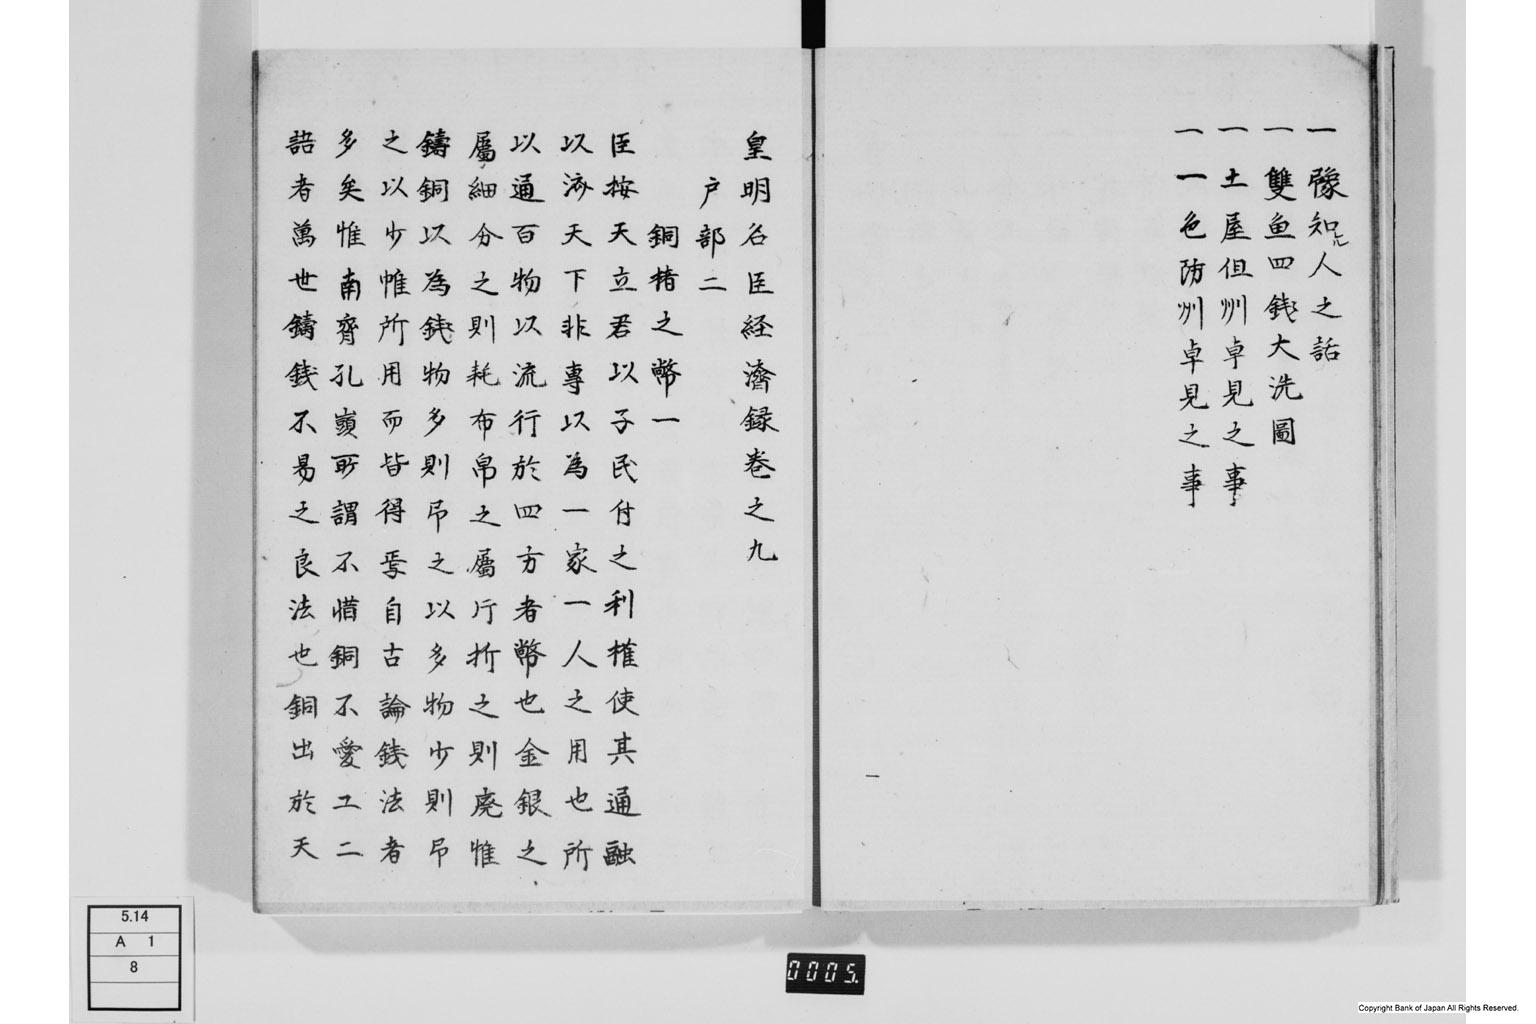 一 豫知ル人之話
一 雙魚四銭大洗圖
一 土屋但州卓見之事
一 一色防州卓見之事
皇明名臣経濟録卷之九
戸部二
銅楮之幣一
臣按天立君以子民付之利権使其通融
以済天下非專以為一家一人之用也所
以通百物以流行於四方者幣也金銀之
屬細分之則耗布帛之屬片折之則廃惟
鑄銅以為銭物多則予之以多物少則予
之以少惟所用而皆得焉自古論銭法者
多矣惟南齊孔顗所謂不惜銅不愛工二
語者萬世鑄銭不易之良法也銅出於天
5.14
A 1
8
0005.
Copyright Bank of Japan All Rights Reserved.